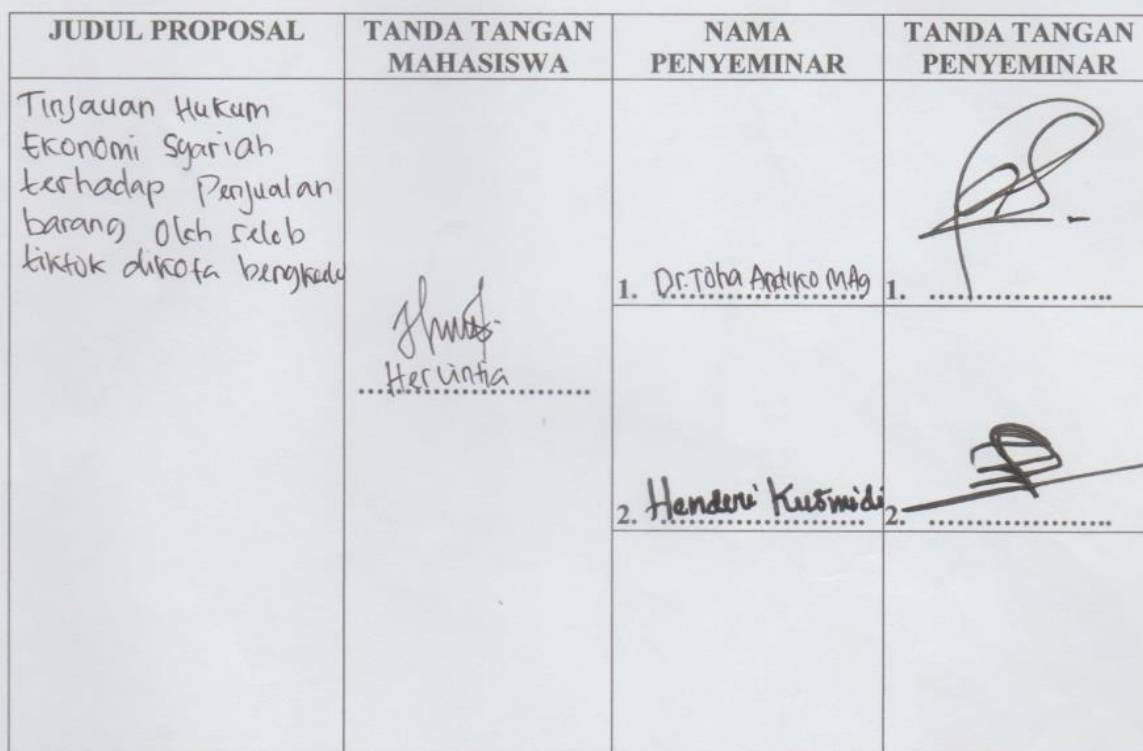 JUDUL PROPOSAL
TANDA TANGAN
MAHASISWA
NAMA
PENYEMINAR
TANDA TANGAN
PENYEMINAR
Tinjauan Hukum
Ekonomi Syariah
terhadap Penjualan
barang Oleh seleb
tiktok dikota bengkulu
Herlintia
1. Dr. Toha Andiko MAg
1.
2. Henderi Kusmidi
2.